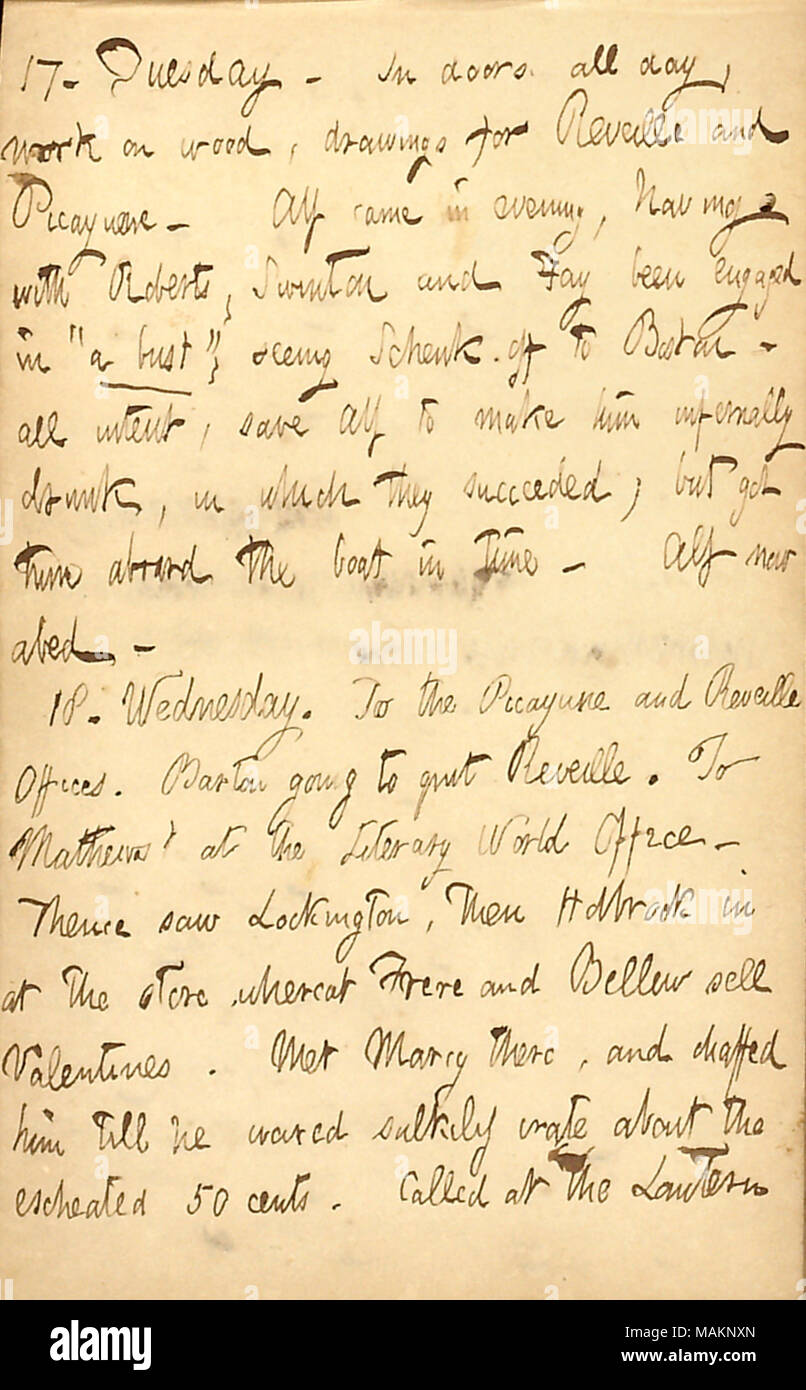 17. Tuesday - In doors all day,
work on wood, drawings for Reveille and
Picayune - Alf came in evening, having
with Roberts, Swinton and Fay been engaged
in "a bust"; seeing Schenk off to Boston -
all intent, save Alf to make him infernally
drunk, in which they succeeded; but got
him aboard the boat in time - Alf now
abed. -
18. Wednesday. To the Picayune and Reveille
Offices. Barton going to quit Reveille. To
Mathews' at the Literary World Office -
Thence saw Lockington, then Holbrook in
at the store whereat Frere and Bellew sell
Valentines. Met Marcy there, and chaffed
him till he waxed sulkily irate about the
escheated 50 cents. Called at the Lantern
alamy
Image ID: MAKNXN
www.alamy.com